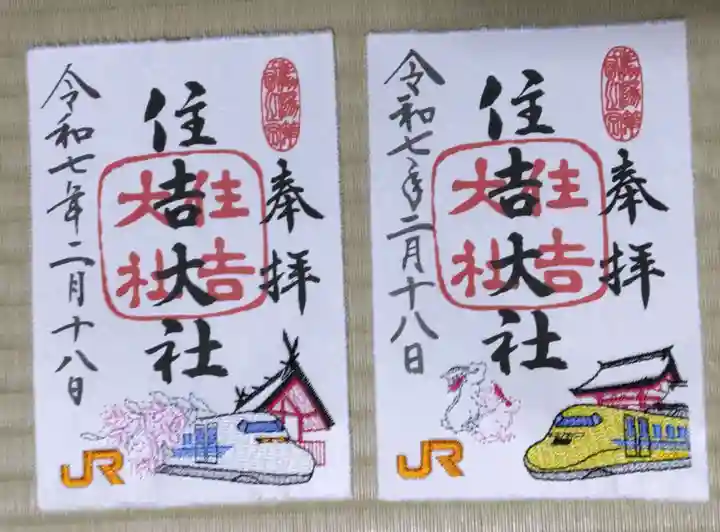 奉拝
住吉大社
住吉大社
令和七年二月十八日
JR
奉拝
住吉大社
住吉大社
令和七年二月十八日
JR